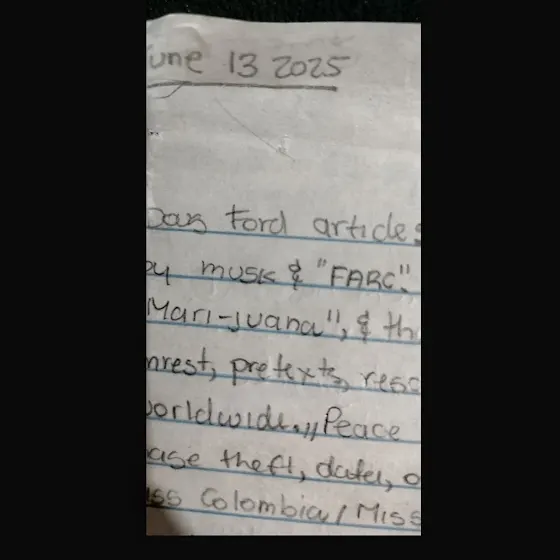 une 13 2025
Doug Ford article:
by musk & "FARC".
"Mari-juana", & th
nrest, pretexts, reso
worldwide.,, Peace
ase theft, dates, o
iss Colombia / Miss